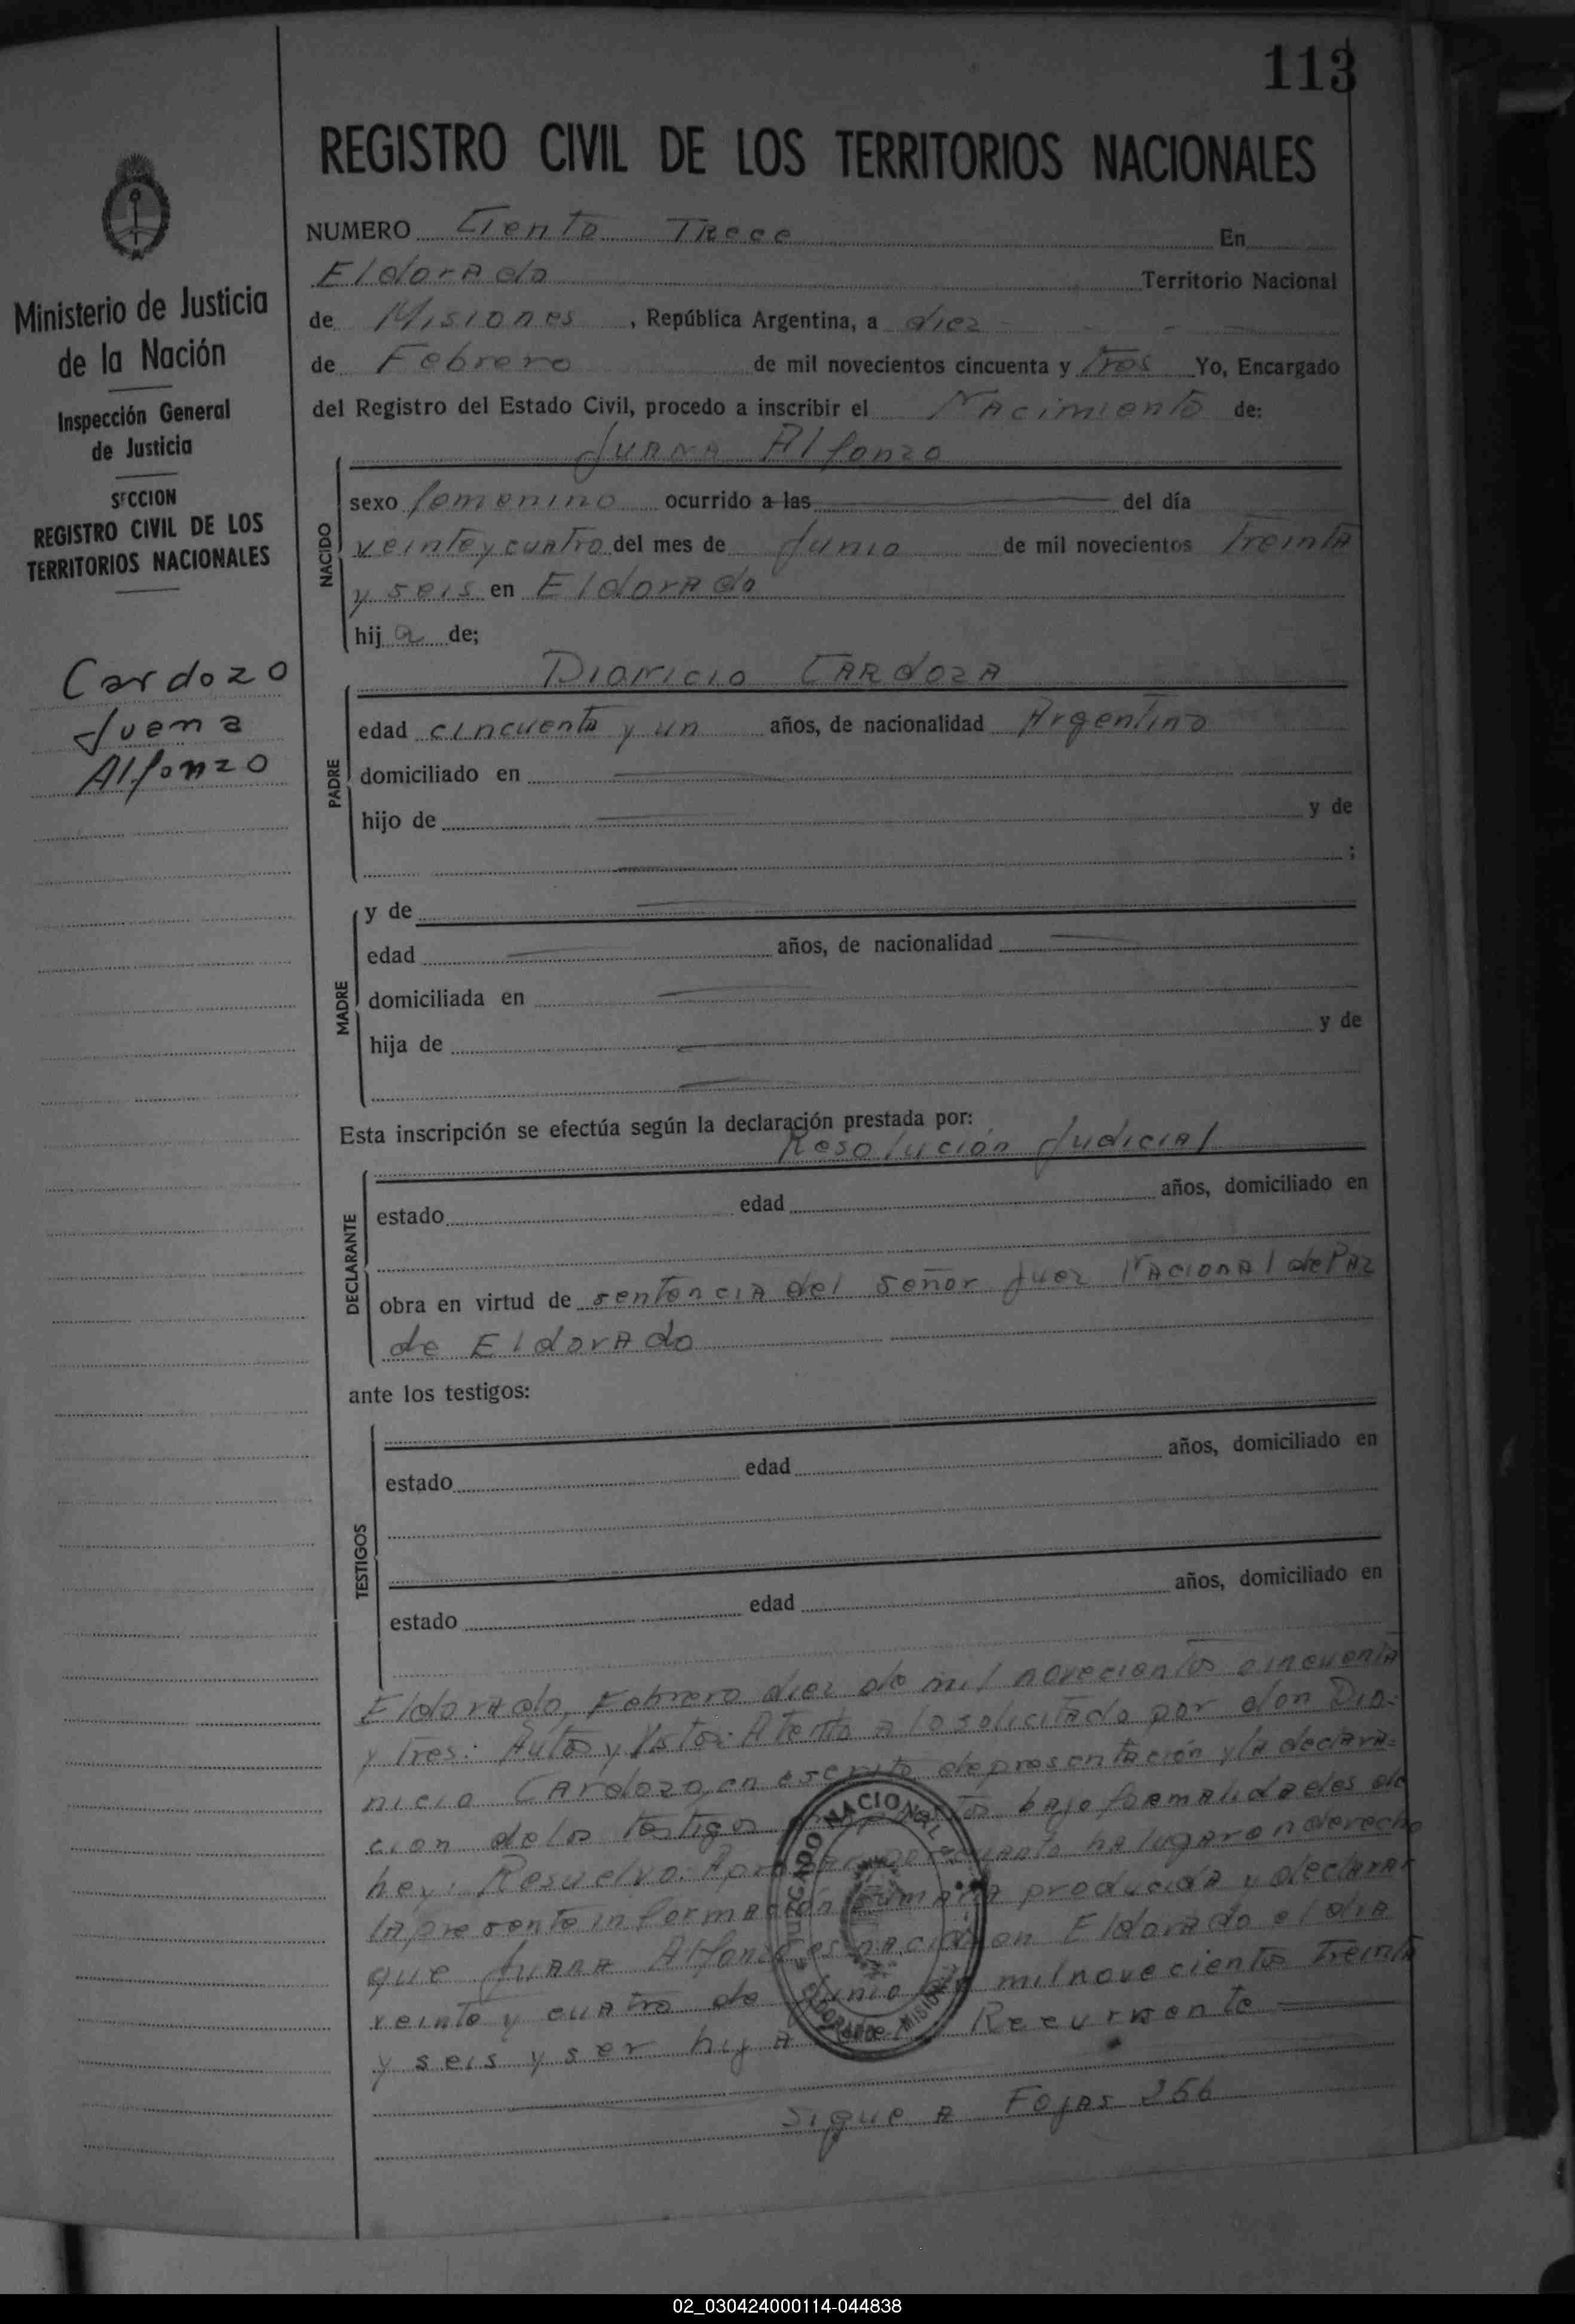 113
REGISTRO CIVIL DE LOS TERRITORIOS NACIONALES
NUMERO Ciento Trece En
Eldorado Territorio Nacional
de Misiones, República Argentina, a diez
de Febrero de mil novecientos cincuenta y Tres Yo, Encargado
del Registro del Estado Civil, procedo a inscribir el Nacimiento de:
Juana Alfonzo
NACIDO
sexo femenino ocurrido a las del día
veinte y cuatro del mes de Junio de mil novecientos Treinta
y seis en Eldorado
hija de;
PADRE
Dionicio Cardoza
edad cincuenta y un años, de nacionalidad Argentino
domiciliado en
hijo de y de
;
MADRE
y de
edad años, de nacionalidad
domiciliada en
hija de y de
Esta inscripción se efectúa según la declaración prestada por:
Resolución Judicial
DECLARANTE
estado edad años, domiciliado en
obra en virtud de sentencia del Señor Juez Nacional de Paz
de Eldorado
ante los testigos:
TESTIGOS
estado edad años, domiciliado en
estado edad años, domiciliado en
Eldorado, Febrero diez de mil novecientos cincuenta
y Tres: Autos y Vistos: Atento a lo solicitado por don Dio-
nicio Cardozo, en escrito de presentación y la declara=
cion de los testigos bajo formalidades de
ley: Resuelvo: Aprobar por cuanto ha lugar en derecho
la presente información sumaria producida y declarar
que Juana Alfonzo es nacida en Eldorado el dia
veinte y cuatro de Junio de mil novecientos Treinta
y seis y ser hija del Recurrente
Sigue a Fojas 256
JUZGADO NACIONAL DE PAZ
ELDORADO MISIONES
Ministerio de Justicia
de la Nación
Inspección General
de Justicia
SECCION
REGISTRO CIVIL DE LOS
TERRITORIOS NACIONALES
Cardozo
Juana
Alfonzo
02_030424000114-044838